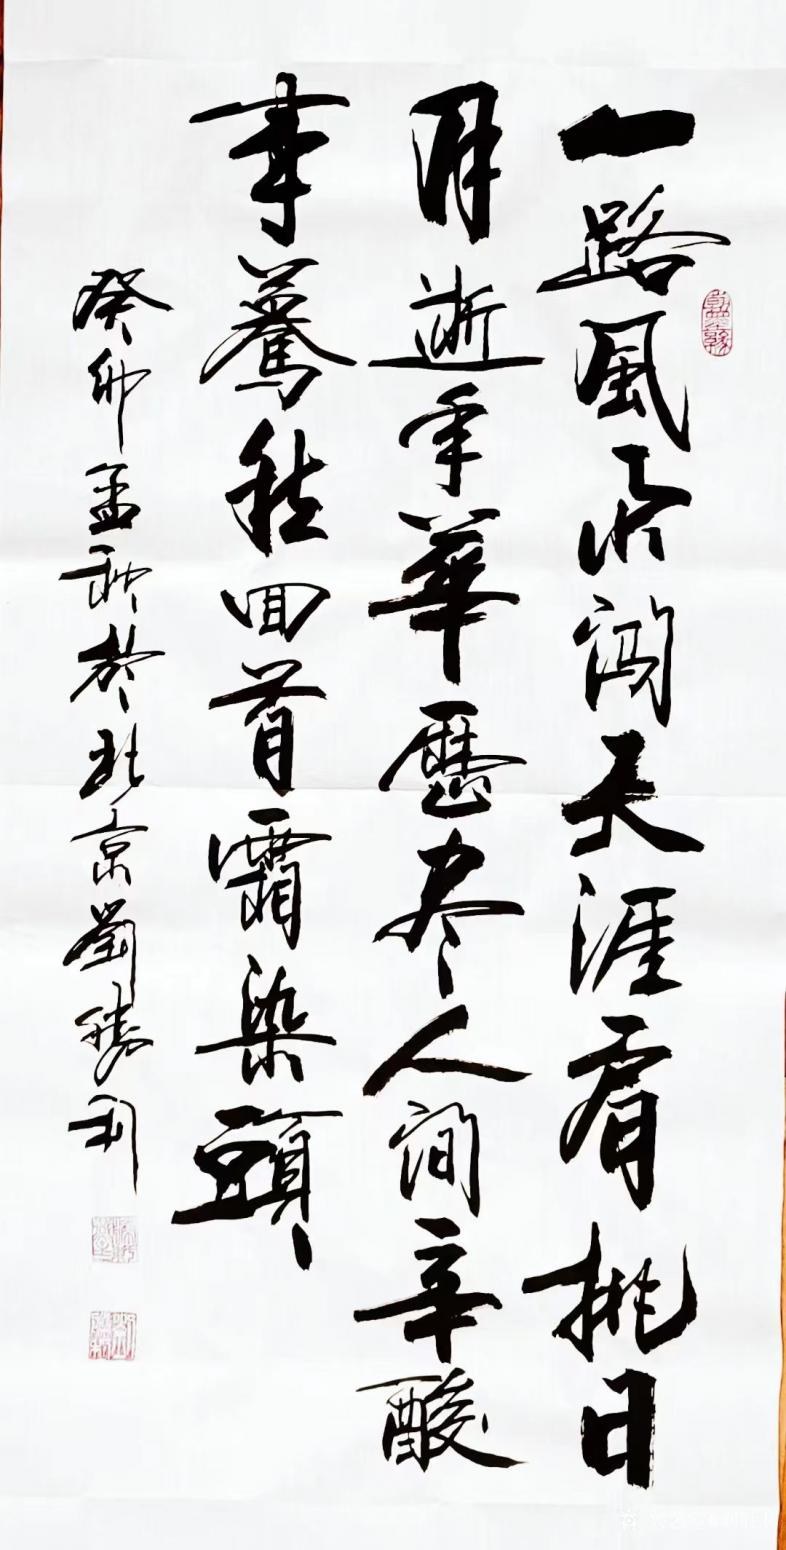 一路風闖天涯肩挑日
月逝年華歷尽人間辛酸
事驀然回首霜染頭
癸卯孟秋於北京劉勝利